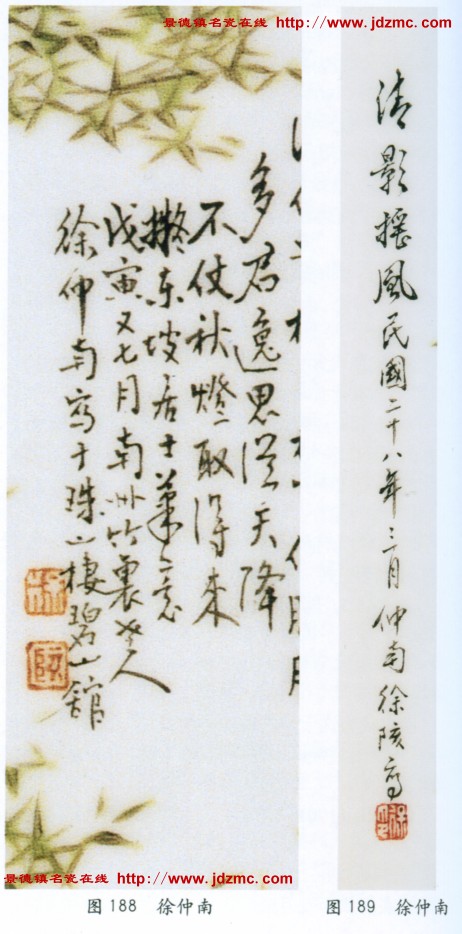 景德镇名瓷在线 http://www.jdzmc.com
多君逸思從天降
不仗秋燈取得來
擬東坡居士筆意
戊寅又七月南州竹裏老人
徐仲南寫于珠山棲碧山館
清影搖風民國二十八年三月仲南徐陔寫
景德镇名瓷在线 http://www.jdzmc.com
图188 徐仲南
图189 徐仲南